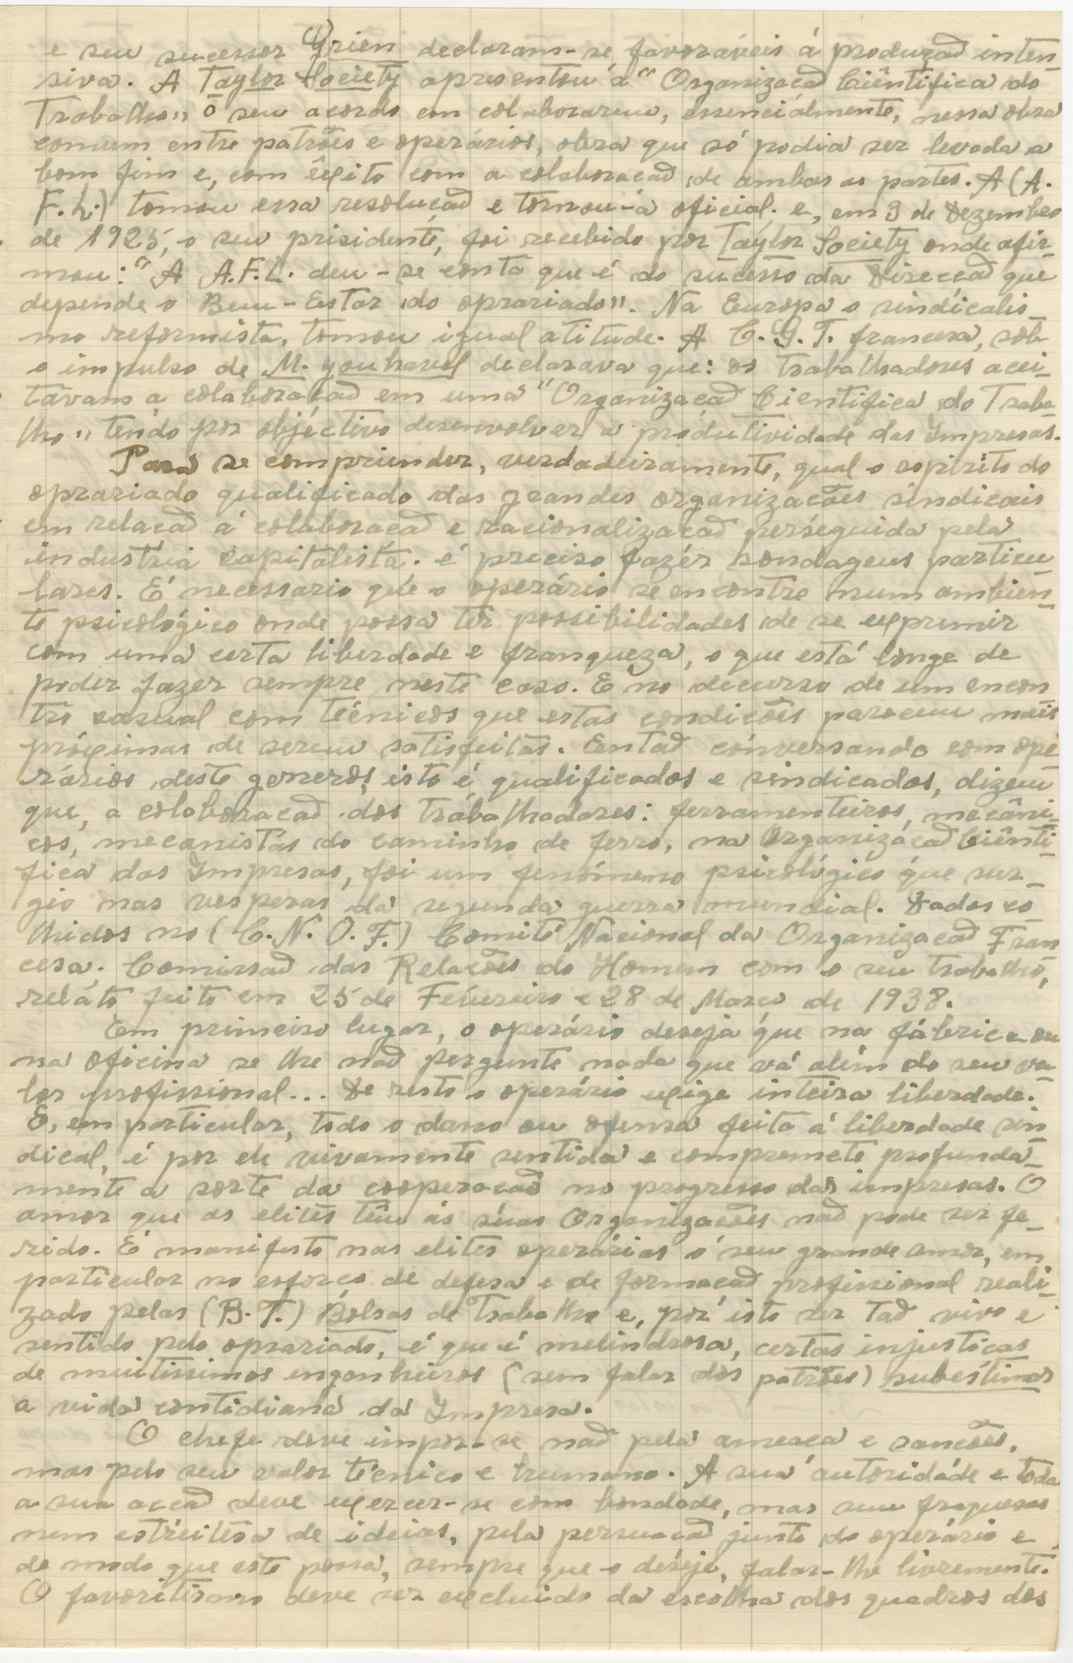 e seu sucessor Grien declaram-se favoráveis á produzad inten
siva. A Taylor Society apresentou á "Organizacad Ciêntifica do
Trabalho" o seu acordo em colaborarem, essencialmente, nessa obra
comum entre patrões e operários, obra que só podia ser levada a
bom fim e, com êxito com a colaboracad de ambas as partes. A (A.
F. L.) tomou essa resolucad e tornou-a oficial. e, em 9 de Dezembro
de 1925, o seu prisidente, foi recebido por Taylor Society onde afir
mou: "A A.F.L. deu-se conta que é do sucesso da Direccad que
depende o Bem-Estar do oprariado". Na Europa o sindicalis_
mo reformista, tomou igual atitude. A C.G.T. francesa, sob
o impulso de M. youhavel declarava que: os trabalhadores acei_
tavam a colaboracad em uma "Organizacad Cientifica do Traba
lho" tendo por objectivo desenvolver a produtividade das Impresas.
Para se compriender, verdadeiramente, qual o espirito do
oprariado qualificado das grandes organizacões sindicais
em relacad á colaboracad e racionalizacad perseguida pela
industria capitalista. é preciso fazér sondagens particu
lares. É necessario que o operário se encontre num ambien_
te psicológico onde possa ter possibilidades de se exprimir
com uma certa liberdade e franqueza, o que está longe de
poder fazer sempre neste caso. É no decurso de um encon_
tro casual com técnicos que estas condicões parecem mais
próximas de serem satisfeitas. Entad conversando com ope
rários deste generos, isto é, qualificados e sindicados, dizem
que, a colaboracad dos trabalhadores: ferramenteiros, mecâni_
cos, mecanistas do caminho de ferro, na Organizacad Ciênti_
fica das Impresas, foi um fenómeno psicológico que sur_
gio nas vesperas da segunda guerra mundial. Dados co_
lhidos no (C.N.O.F.) Comité Nacional da Organizacad Fran
cesa. Comissad das Relacões do Homem com o seu trabalho,
relato feito em 25 de Fevereiro e 28 de Marco de 1938.
Em primeiro lugar, o operário deseja que na fábrica ou
na oficina se lhe nad pergunte nada que vá além do seu va_
lor profissional... De resto o operário exige inteira liberdade.
E, em particular, todo o dano ou ofensa feita á liberdade sin
dical, é por ele vivamente sentida e compromete profunda_
mente a sorte da cooperacad no progresso das impresas. O
amor que as elites têm ás suas Organizacões nad pode ser fe_
rido. É manifesto nas elites operárias o seu grande amor, em
particular no esforco de defesa e de formacad profissional reali_
zado pelas (B.T.) Bolsas do Trabalho e, por isto ser tad vivo e
sentido pelo oprariado, é que é melindrosa, certas injusticas
de muitissimos engenheiros (sem falar dos patrões) subestimar
a vida contidiana da Impresa.
O chefe deve impor-se nad pela ameaca e sancões,
mas pelo seu valor técnico e humano. A sua autoridade e toda
a sua accad deve exercer-se com bondade, mas sem fraquesas
nem estreitesa de ideias, pela persuacad junto do operário e
de modo que este possa, sempre que o deseje, falar-lhe livremente.
O favoritismo deve ser excluido da escolha dos quadros dos